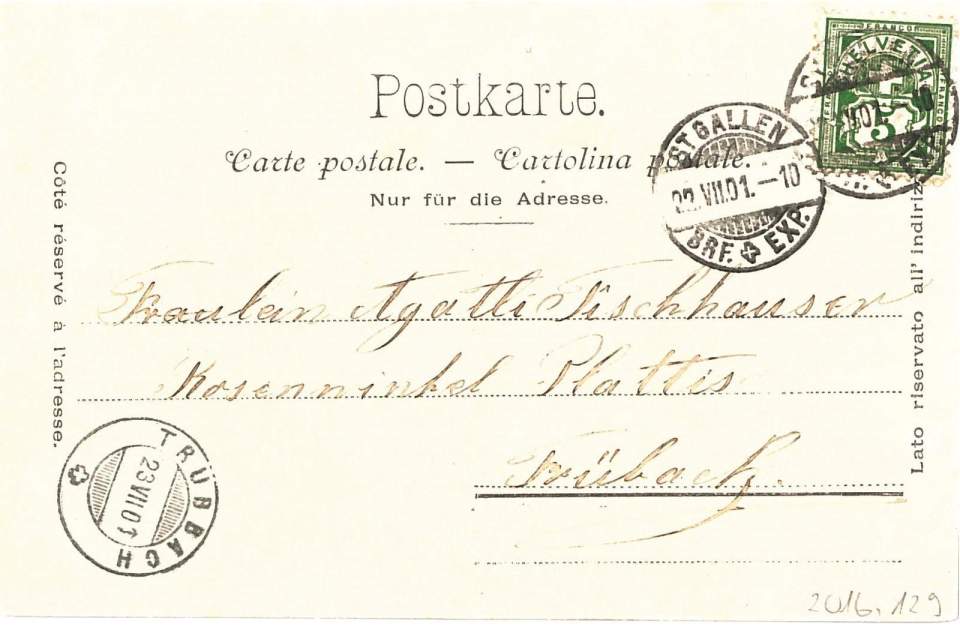 Postkarte.
Carte postale. — Cartolina postale.
Nur für die Adresse.
Côté réservé à l'adresse.
Lato riservato all' indirizzo
FRANCO
HELVETIA
FRANCO
5
ST. GALLEN
22.VII.01.—10
BRF. EXP.
Fräulein Agatti Tischhauser
Rosenninkel Plattis
Trübach.
TRÜBBACH
23 VII 01
2016.129